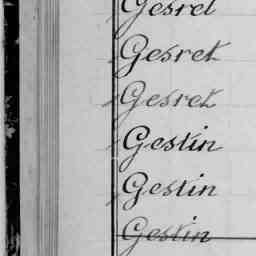 Gesret
Gesret
Gesret
Gestin
Gestin
Gestin